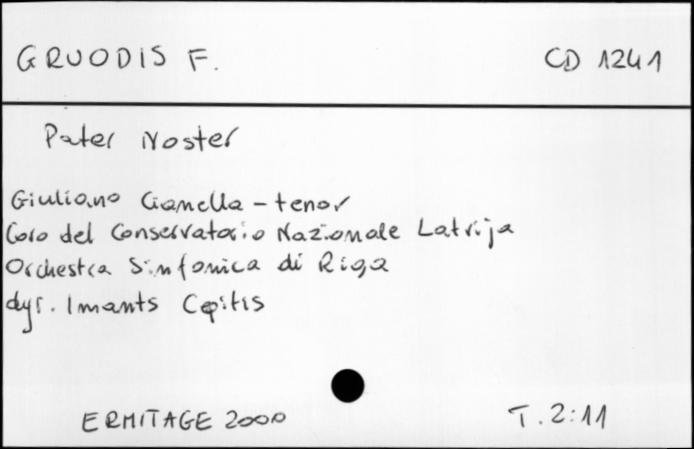 GRUODIS F. CD 1241
Pater Noster
Giuliano Cianella - tenor
Coro del Conservatorio Nazionale Latvija
Orchestra Sinfonica di Riga
dyr. Imants Cepitis
ERMITAGE 2000 T. 2:11